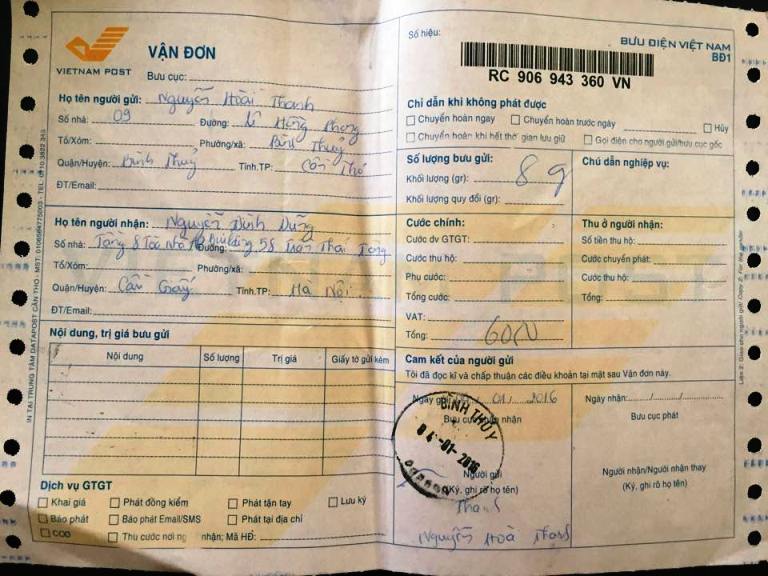 VIETNAM POST
VẬN ĐƠN
Bưu cục:
Số hiệu:
BƯU ĐIỆN VIỆT NAM
BĐ1
RC 906 943 360 VN
Họ tên người gửi: Nguyễn Hoài Thanh
Số nhà: 09 Đường: Lê Hồng Phong
Tổ/Xóm: Phường/xã: Bình Thủy
Quận/Huyện: Bình Thủy Tỉnh.TP: Cần Thơ
ĐT/Email:
Họ tên người nhận: Nguyễn Đình Dũng
Số nhà: Tầng 8 Tòa Nhà Building 58 Trần Thái Tông Đường:
Tổ/Xóm: Phường/xã:
Quận/Huyện: Cầu Giấy Tỉnh.TP: Hà Nội
ĐT/Email:
Nội dung, trị giá bưu gửi
Nội dung Số lượng Trị giá Giấy tờ gửi kèm
Dịch vụ GTGT
Khai giá Phát đồng kiểm Phát tận tay Lưu ký
Báo phát Báo phát Email/SMS Phát tại địa chỉ
COD Thu cước nơi người nhận; Mã HĐ:
Chỉ dẫn khi không phát được
Chuyển hoàn ngay Chuyển hoàn trước ngày Hủy
Chuyển hoàn khi hết thời gian lưu giữ Gọi điện cho người gửi/bưu cục gốc
Số lượng bưu gửi:
Khối lượng (gr): 89
Khối lượng quy đổi (gr):
Chú dẫn nghiệp vụ:
Cước chính:
Cước dv GTGT:
Cước thu hộ:
Phụ cước:
Tổng cước:
VAT:
Tổng:
Thu ở người nhận:
Số tiền thu hộ:
Cước chuyển phát:
Cước thu hộ:
Tổng:
Cam kết của người gửi
Tôi đã đọc kĩ và chấp thuận các điều khoản tại mặt sau Vận đơn này.
Ngày gửi 01 2016
Bưu cục nhận
BÌNH THỦY
04-01-2016
Người gửi
(Ký, ghi rõ họ tên)
Thanh
Nguyễn Hoài Thanh
Ngày nhận: / /
Bưu cục phát
Người nhận/Người nhận thay
(Ký, ghi rõ họ tên)